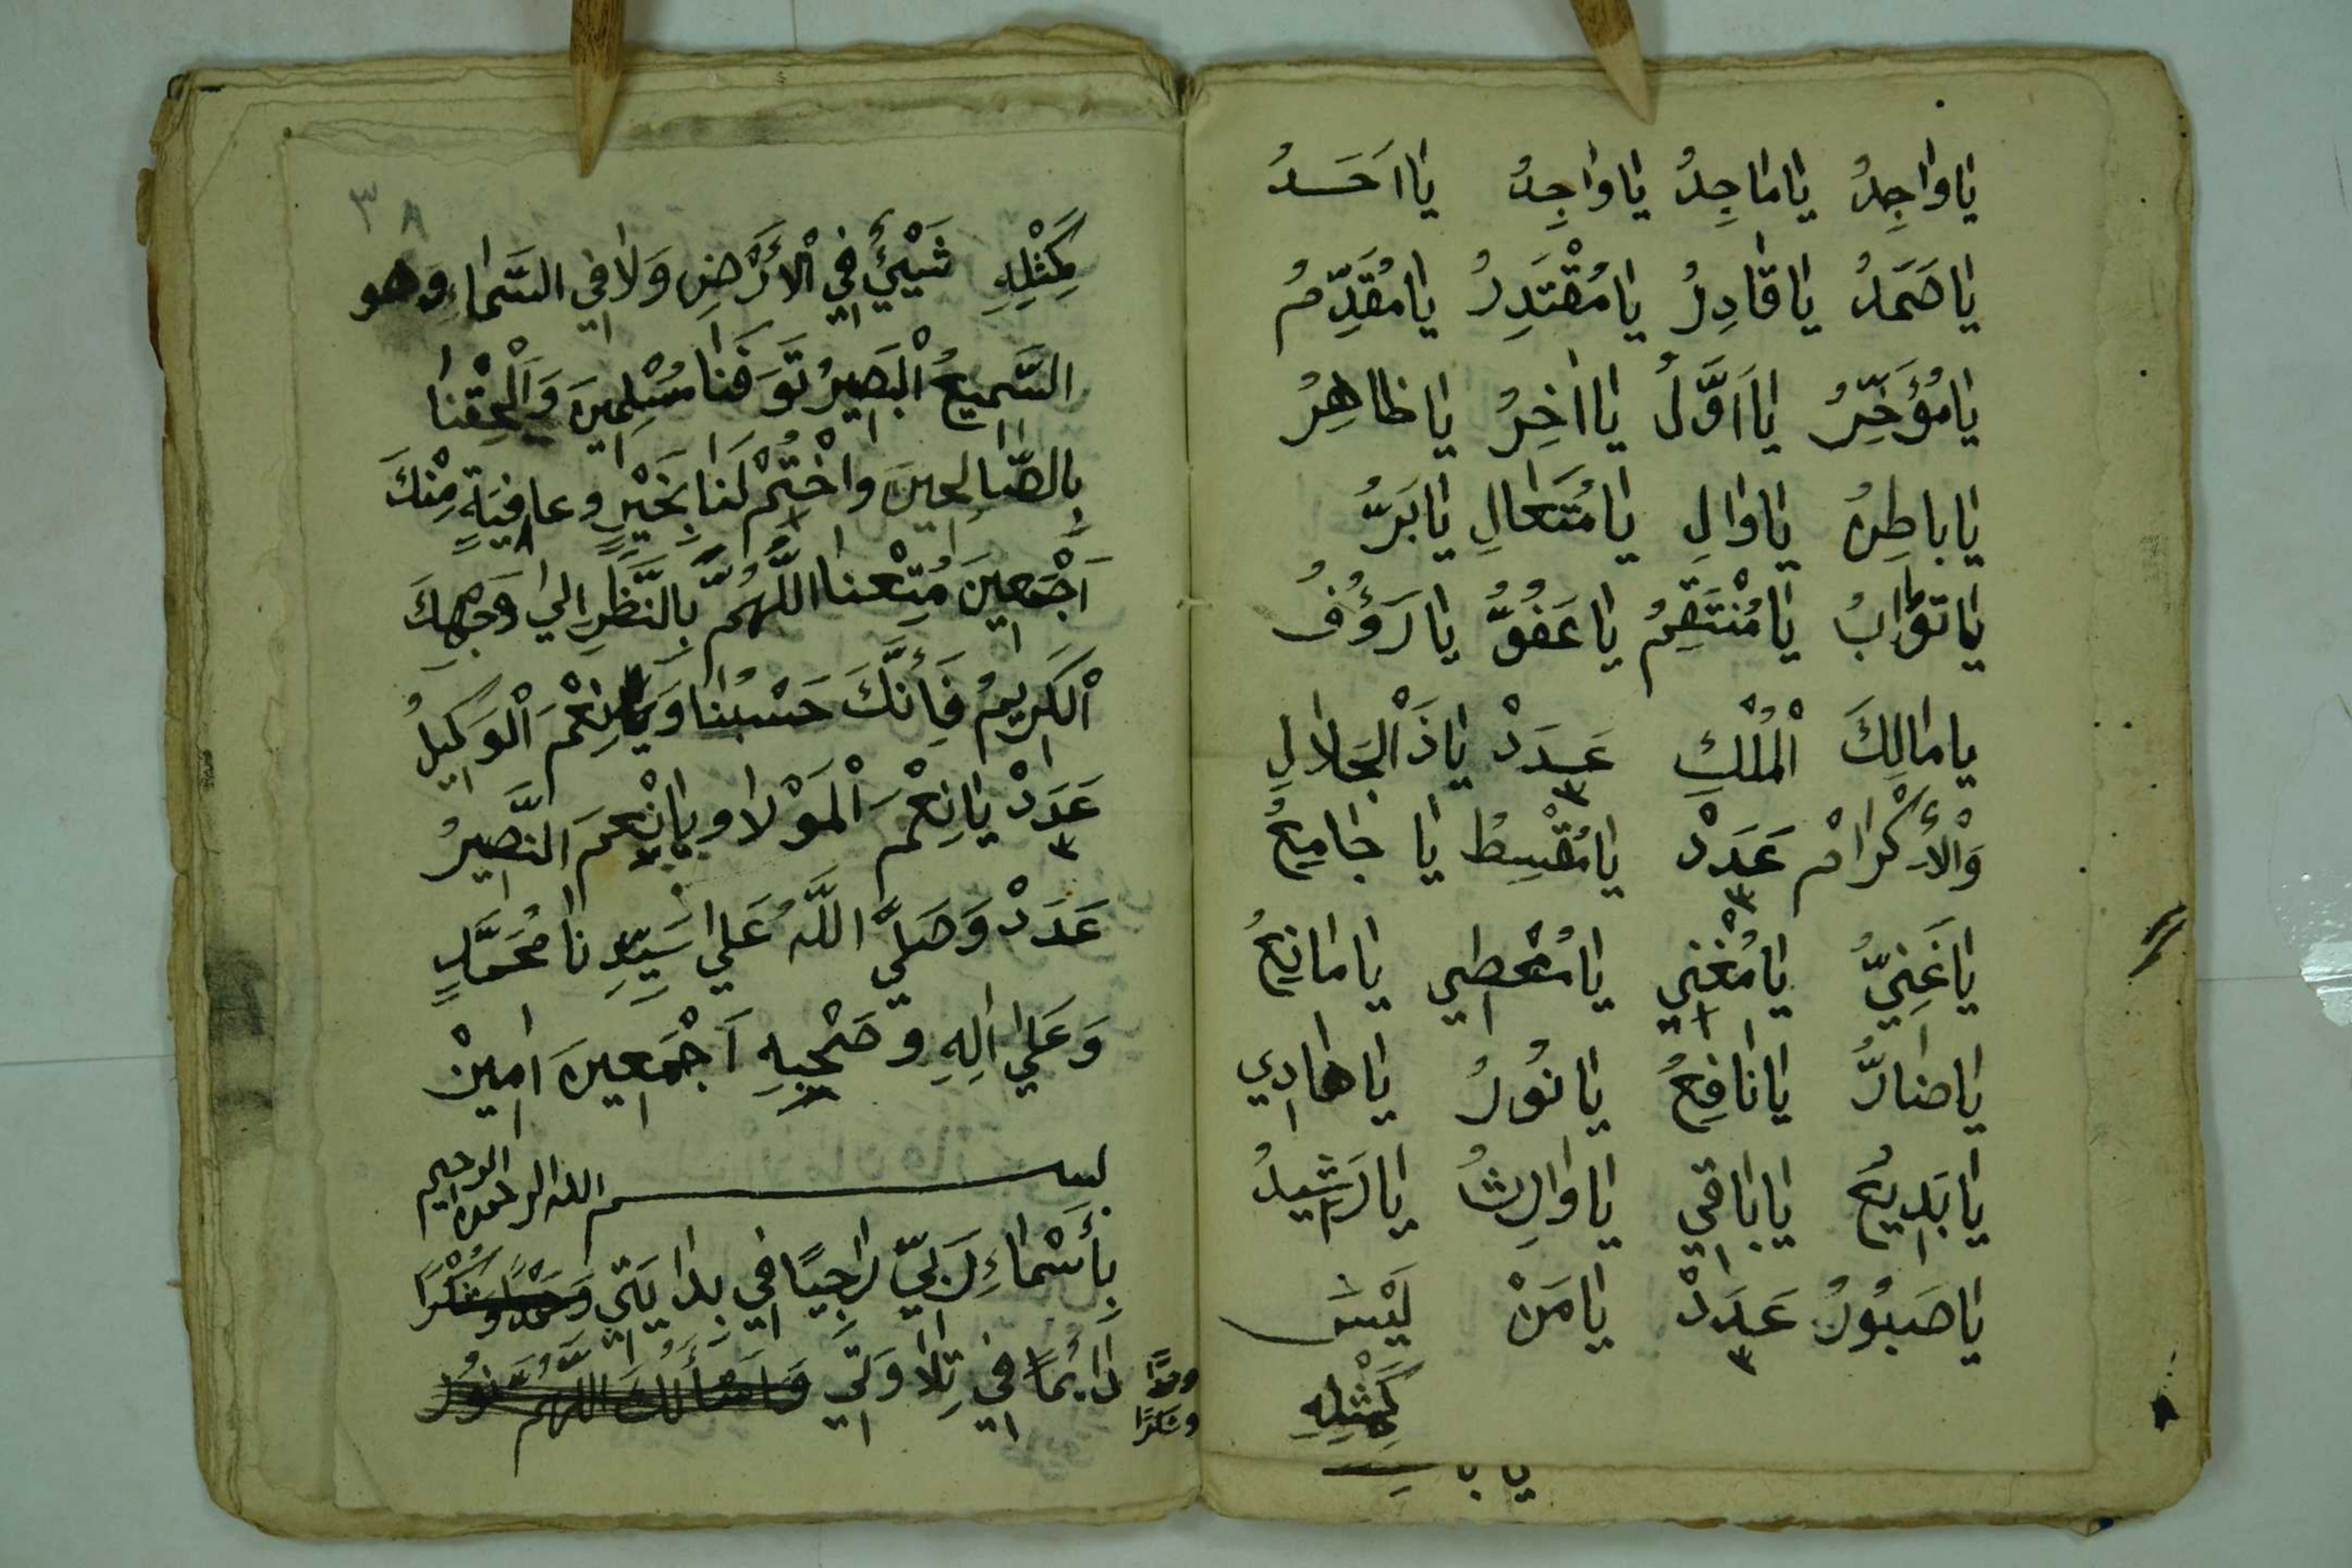 يَا وَاجِدُ يَا مَاجِدُ يَا وَاجِدُ يَا اَحَدُ
يَا صَمَدُ يَا قَادِرُ يَا مُقْتَدِرُ يَا مُقَدِّمُ
يَا مُؤَخِّرُ يَا اَوَّلُ يَا اٰخِرُ يَا ظَاهِرُ
يَا بَاطِنُ يَا وَالِ يَا مُتَعَالِ يَا بَرُّ
يَا تَوَّابُ يَا مُنْتَقِمُ يَا عَفُوُّ يَا رَؤُفُ
يَا مَالِكَ الْمُلْكِ عَدَدْ ٣ يَا ذَ الْجَلَالِ
وَالْأِكْرَامْ عَدَدْ ٣ يَا مُقْسِطُ يَا جَامِعُ
يَا غَنِيُّ يَا مُغْنِي يَا مُعْطِي يَا مَانِعُ
يَا ضَارُّ يَا نَافِعُ يَا نُورُ يَا هَادِي
يَا بَدِيعُ يَا بَاقِي يَا وَارِثُ يَا رَشِيدُ
يَا صَبُورُ عَدَدْ ٣ يَا مَنْ لَيْسَ
كَمِثْلِهِ
٣٨
كَمِثْلِهِ شَيْئٌ فِي الْأَرْضِ وَلَا فِي السَّمَاءِ وَهو
السَّمِيعُ الْبَصِيرُ تَوَفَّنَا مُسْلِمِينَ وَاَلْحِقْنَا
بِالصَّالِحِينَ وَاخْتِمْ لَنَا بِخَيْرٍ وعافِيَةٍ مِنْكَ
اَجْمَعِينَ مَتِّعْنَا اللَّهُمَّ بِالنَّظَرِ اِلَي وَجْهِكَ
الْكَرِيمُ فَأِنَّكَ حَسْبُنَا وَيَا نِعْمَ الْوَكِيلُ
عَدَدْ ٣ يَا نِعْمَ الْمَوْلَا وَيَا نِعْمَ النَّصِيرُ
عَدَدْ وَصَلَّي اللَّهُ عَلَي سَيِّدِنَا مُحَمَّدٍ
وَعَلَي اٰلِهِ وَصَحْبِهِ اَجْمَعِينَ اٰمِينْ
بسم الله الرحمن الرحيم
بِأَسْمَاءِ رَبِّي رَاجِيًا فِي بِدَايَتِي وَحَمْدًا وَشُكْرًا
دَائِمًا فِي تِلَاوَتِي وَاَسْأَلُكَ اللَّهُمَّ نُورُ
وحمدًا
وشكرًا